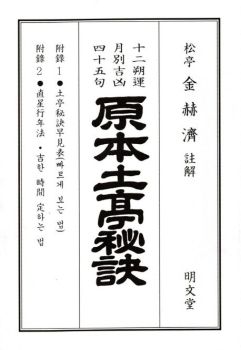 松亭 金赫濟 註解
明文堂
十二朔運
月別吉凶
四十五句
原本土亭秘訣
附錄1 ● 土亭秘訣早見表(빠르게 보는 법)
附錄2 ● 直星行年法 · 吉한 時間 定하는 법